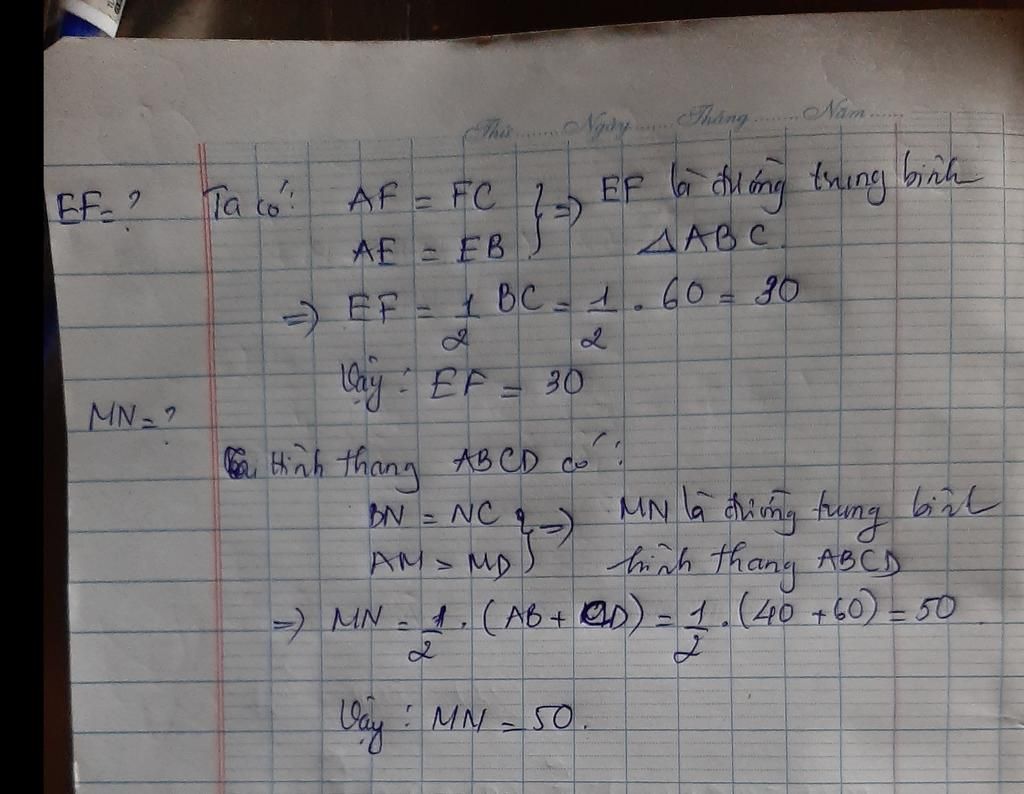 Thứ ........ Ngày ........ Tháng ........ Năm ......
EF = ? Ta có: AF = FC } => EF là đường trung bình
AE = EB ΔABC.
=> EF = 1/2 BC = 1/2 . 60 = 30
Vậy : EF = 30
MN = ?
Hình thang ABCD có :
BN = NC } => MN là đường trung bình
AM = MD hình thang ABCD
=> MN = 1/2 . (AB + CD) = 1/2 . (40 + 60) = 50
Vậy : MN = 50.